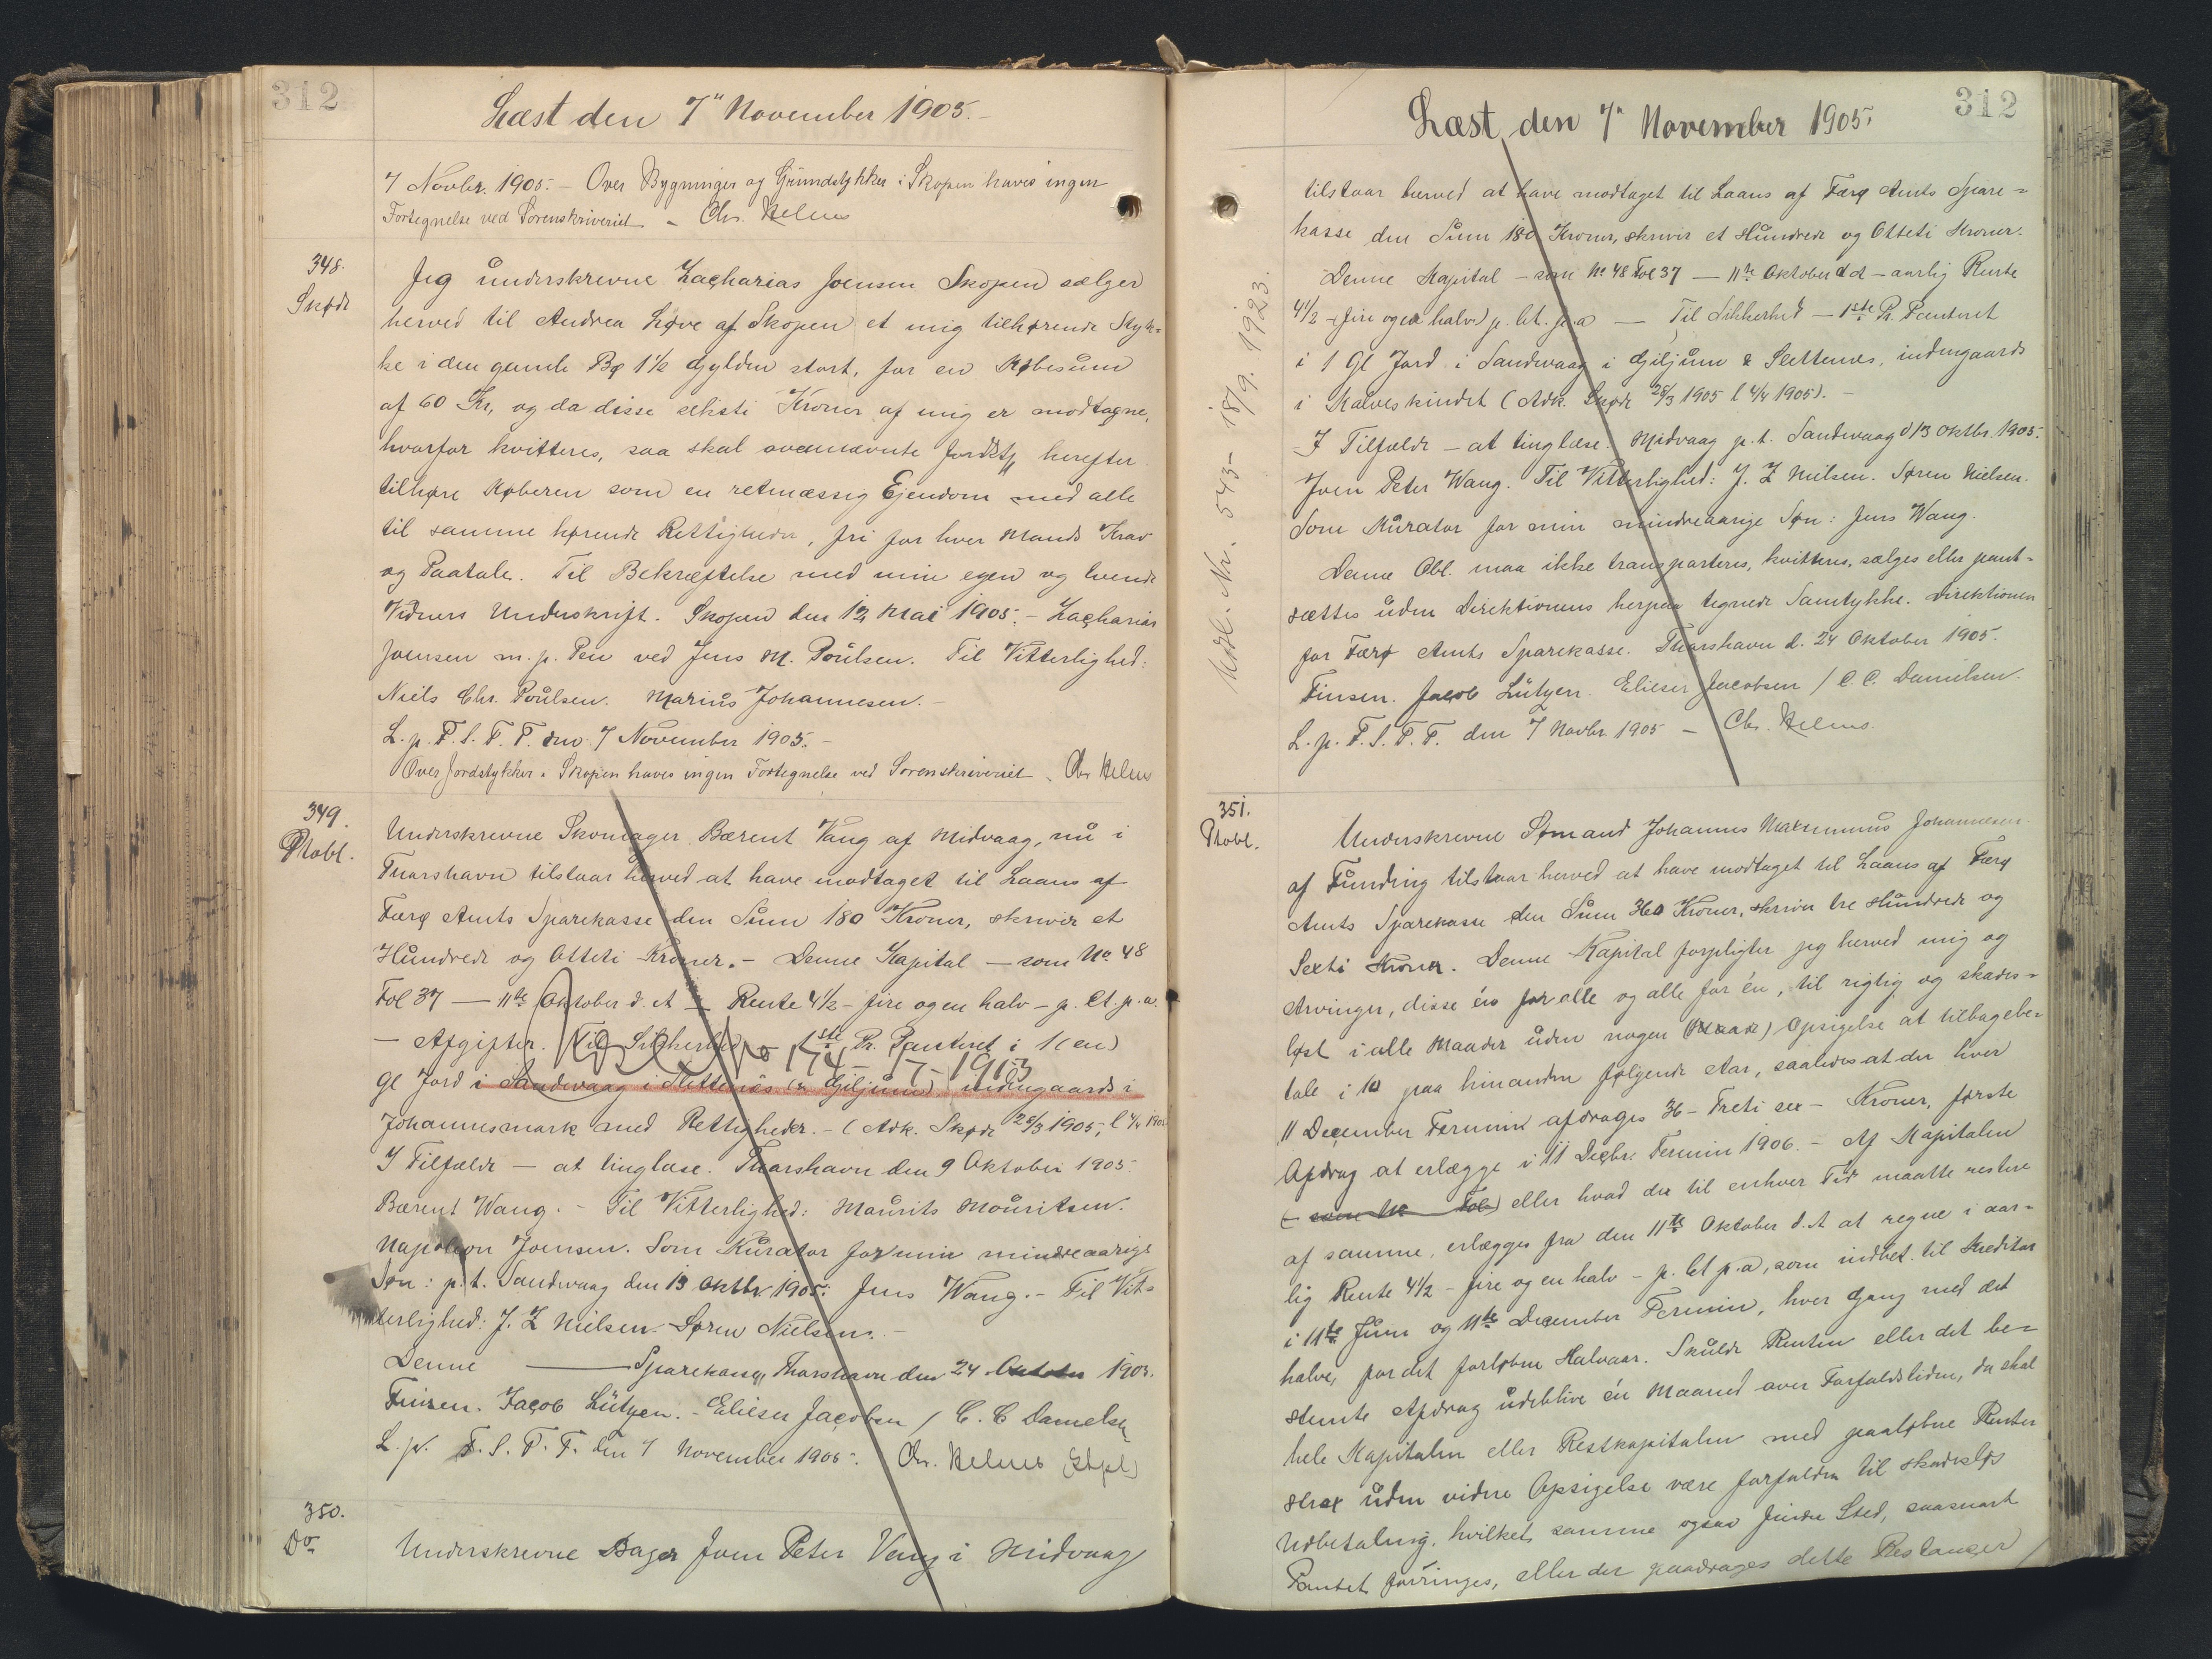 312
Læst den 7" November 1905.-
7 Novbr. 1905. - Over Bygninger og Grundstykker i Skopen haves ingen
Fortegnelse ved Sorenskriveriet - Chr. Helms
348.
Skøde
Jeg underskrevne Zacharias Joensen Skopen sælger
herved til Andrea Høve af Skopen et mig tilhørende Styk-
ke i den gamle Bø 1½ Gylden stort, for en Købesum
af 60 Kr, og da disse seksti Kroner af mig er modtagne,
hvorfor kvitteres, saa skal ovennævnte Jordst herefter
tilhøre Køberen som en retmæssig Ejendom med alle
til samme hørende Rettigheder, fri for hver Mands Krav
og Paatale. Til Bekræftelse med min egen og tvende
Vidners Underskrift. Skopen den 12 Mai 1905. - Zacharias
Joensen m. p. Pen ved Jens M. Poulsen. Til Vitterlighed:
Niels Chr. Poulsen. Marius Johannesen. -
L. p. F. S. T. T. den 7 November 1905. -
Over Jordstykker i Skopen haves ingen Fortegnelse ved Sorenskriveriet - Chr Helms
349.
Ptobl.
Underskrevne Skomager Bærent Vang af Midvaag, nu i
Thorshavn tilstaar herved at have modtaget til Laans af
Færø Amts Sparekasse den Sum 180 Kroner, skriver et
Hundrede og Otteti Kroner. - Denne Kapital - som No 48
Fol 37 - 11te Oktober d. A - Rente 4½ - fire og en halv - p. Ct. p. a.
- Afgifter. Til Sikkerhed - 1ste Pr. Panteret i 1 (en)
No 174 - 17 - 1913
Gl Jord i Sandevaag i Slettenes (& Giljum) indengaards i
Johannesmark med Rettigheder. - (Adk. Skøde 28/3 1905, l 4/4 1905
I Tilfælde - at tinglæse. Thorshavn den 9 Oktober 1905.
Bærent Wang. - Til Vitterlighed: Maurits Mouritsen.
Napoleon Joensen. Som Kurator for min mindreaarige
Søn: p. t. Sandevaag den 13 Oktbr 1905. Jens Wang. - Til Vit-
terlighed: J. Z Nielsen. Søren Nielsen. -
Denne — Sparekasse, Thorshavn den 24 Oktober 1905.
Finsen. Jacob Lützen. - Elieser Jacobsen / C. C Danielsen
L. p. F. S. T. T. den 7 November 1905. Chr. Helms (Stpl)
350.
Do
Underskrevne Bager Joen Peter Vang i Midvaag
312
Læst den 7" November 1905.
tilstaar herved at have modtaget til Laans af Færø Amts Spare-
kasse den Sum 180 Kroner, skriver et Hundrede og Otteti Kroner.
Denne Kapital - som No 48 Fol 37 - 11te Oktober d A - aarlig Rente
4½ - (fire og en halv) p. Ct. p. a - Til Sikkerhed - 1ste Pr. Panteret
i 1 Gl Jord i Sandevaag i Giljum & Slettenes, indengaards
i Kalveskindet (Adk. Skøde 28/3 1905 l 4/4 1905). -
I Tilfælde - at tinglæse. Midvaag p. t. Sandevaag d 13 Oktbr. 1905.
Joen Peter Wang. Til Vitterlighed: J. Z Nielsen. Søren Nielsen.
Som Kurator for min mindreaarige Søn: Jens Wang.
Denne Obl. maa ikke transporteres, kvitteres, sælges eller pant-
sættes uden Direktionens herpaa tegnede Samtykke. Direktionen
for Færø Amts Sparekasse. Thorshavn d. 24 Oktober 1905.
Finsen. Jacob Lützen. Elieser Jacobsen / C. C. Danielsen.
L. p. F. S. T. T. den 7 Novbr. 1905 - Chr. Helms.
Udsl. Nr. 543- 18/9. 1923.
351.
Ptobl.
Underskrevne Sømand Johannes Johannesen
af Funding tilstaar herved at have modtaget til Laans af Færø
Amts Sparekasse den Sum 360 Kroner, skriver tre Hundrede og
Sexti Kroner. Denne Kapital forpligter jeg herved mig og
Arvinger, disse én for alle og alle for én, til rigtig og skades-
løst i alle Maader uden nogen Opsigelse at tilbagebe-
tale i 10 paa hinanden følgende Aar, saaledes at der hver
11 December Termin afdrages 36 - Treti sex - Kroner, første
Afdrag at erlægge i 11 Decbr. Termin 1906. - Af Kapitalen
(- som No Fol) eller hvad der til enhver Tid maatte restere
af samme, erlægges fra den 11te Oktober d. A at regne i aar-
lig Rente 4½ - fire og en halv - p. Ct p. a, som indbet. til Kreditor
i 11te Juni og 11te December Termin, hver Gang med det
halve, for det forløbne Halvaar. Skulde Renten eller det be-
stemte Afdrag udeblive én Maaned over Forfaldstiden, da skal
hele Kapitalen eller Restkapitalen med paaløbne Renter
strax uden videre Opsigelse være forfalden til skadesløs
Udbetaling, hvilket samme ogsaa finder Sted, saasnart
Pantet forringes, eller der paadrages dette Restancer